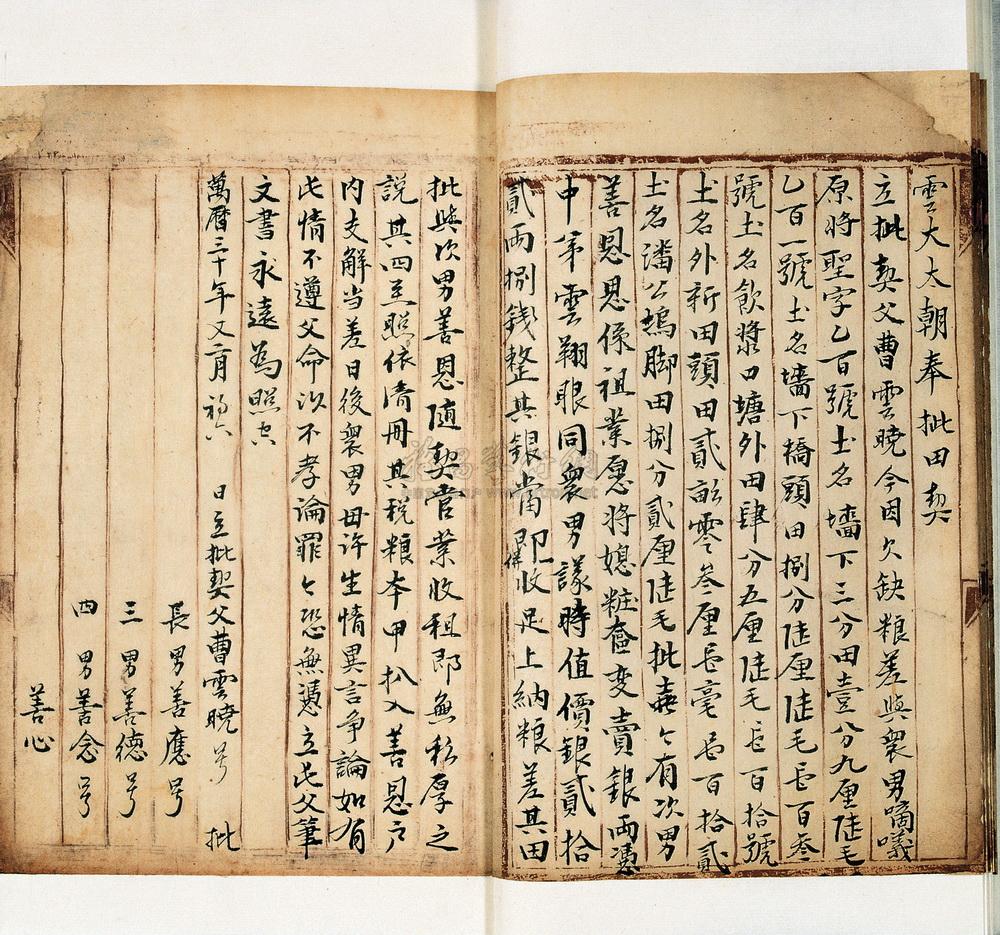 雲大太朝奉批田契
立批契父曹雲曉今因欠缺粮差與衆男嘀嘰
原将聖字乙百號土名墻下三分田壹分九厘陡毛
乙百一號土名墻下橋頭田捌分陡厘陡毛乙百叁
號土名飲漿口塘外田肆分五厘陡毛乙百拾號
土名外新田頭田貳畝零叁厘乙毫乙百拾貳
土名潘公塢脚田捌分貳厘陡毛批 有次男
善恩恩係祖業愿将媳粧奩变賣銀両憑
中弟雲翔眼同衆男議時值價銀貳拾
貳両捌錢整其銀當即收足上納粮差其田
批與次男善恩随契管業收租即無私厚之
説其四至照依清冊其税粮本甲扒入善恩户
内支解当差日後衆男毋許生情異言争論如有
此情不遵父命以不孝論罪今恐無憑立此父筆
文書永遠為照
萬曆三十年又二月初六日立批契父曹雲曉号 批
長男善應号
三男善德号
四男善念号
善心